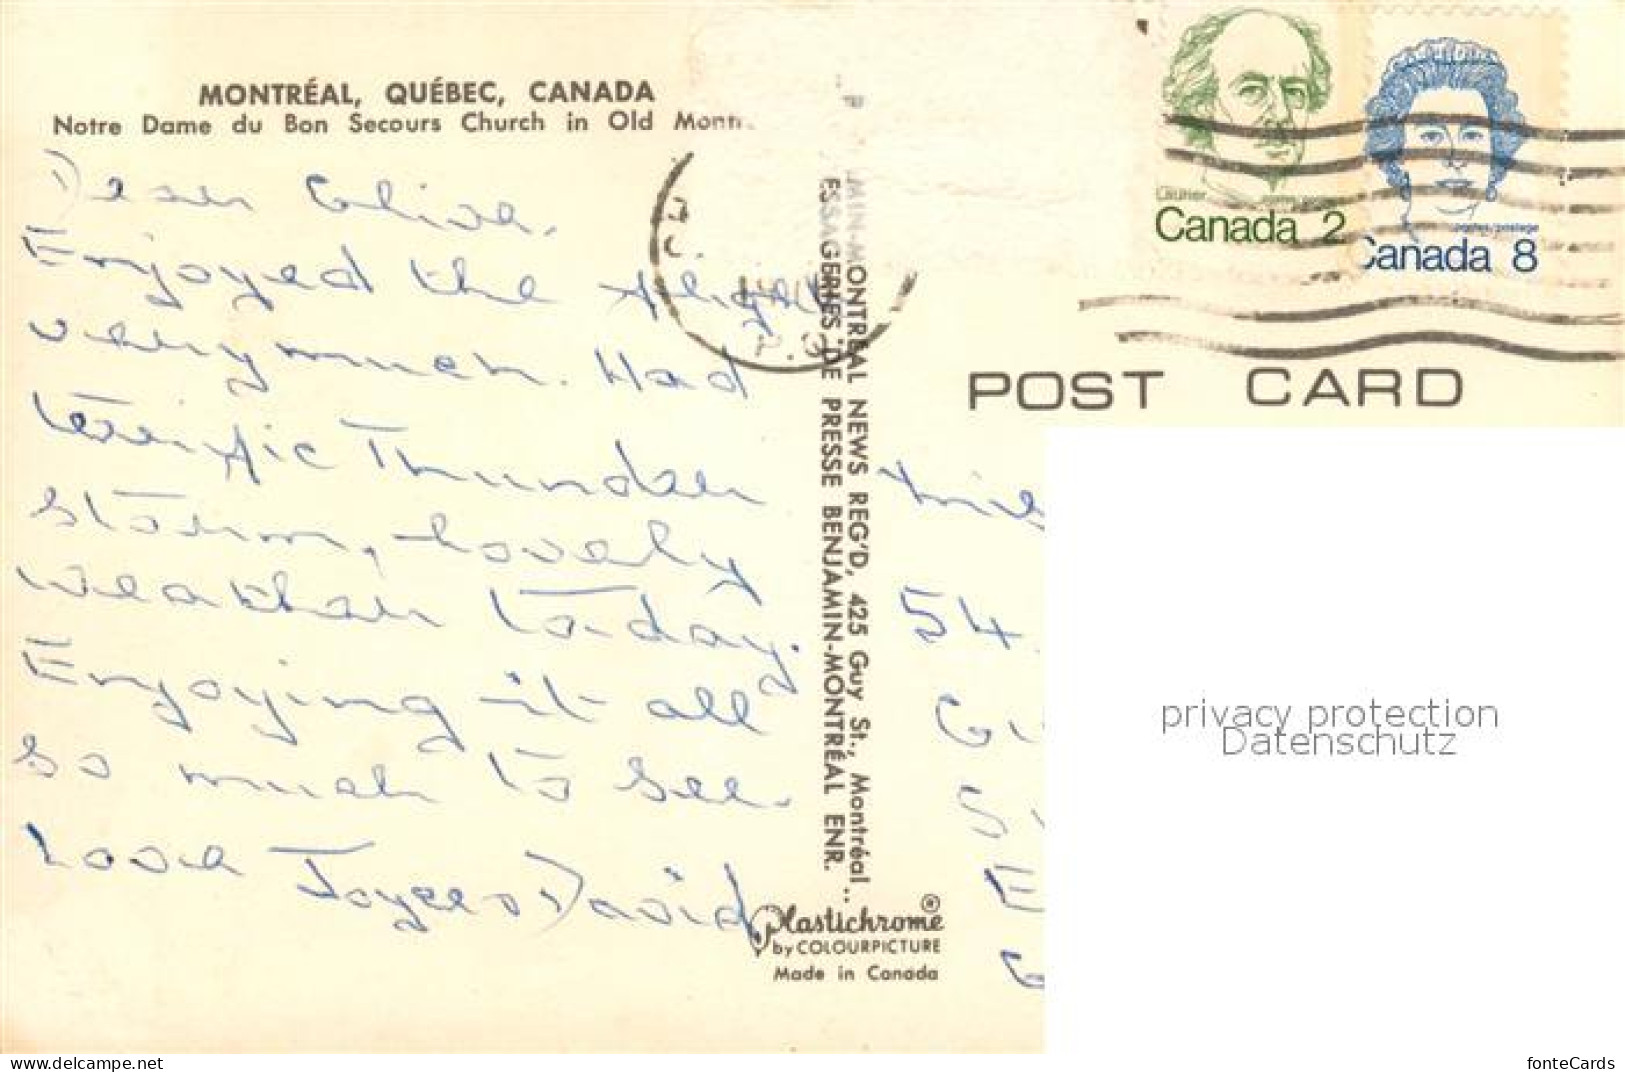 MONTRÉAL, QUÉBEC, CANADA
Notre Dame du Bon Secours Church in Old
Dear
Enjoyed the flight
very much. Had
terrific Thunder
storm, Lovely
weather to-day.
Enjoying it all
so much to see.
Love Joyce David
MIN-MONTREAL NEWS REG'D, 425 Guy St., Montréal ..
ESSAGERIES DE PRESSE BENJAMIN-MONTRÉAL ENR.
Plastichrome®
by COLOURPICTURE
Made in Canada
Laurier
postes/postage
Canada 2
postes/postage
Canada 8
P.Q
POST CARD
54
privacy protection
Datenschutz
fonteCards